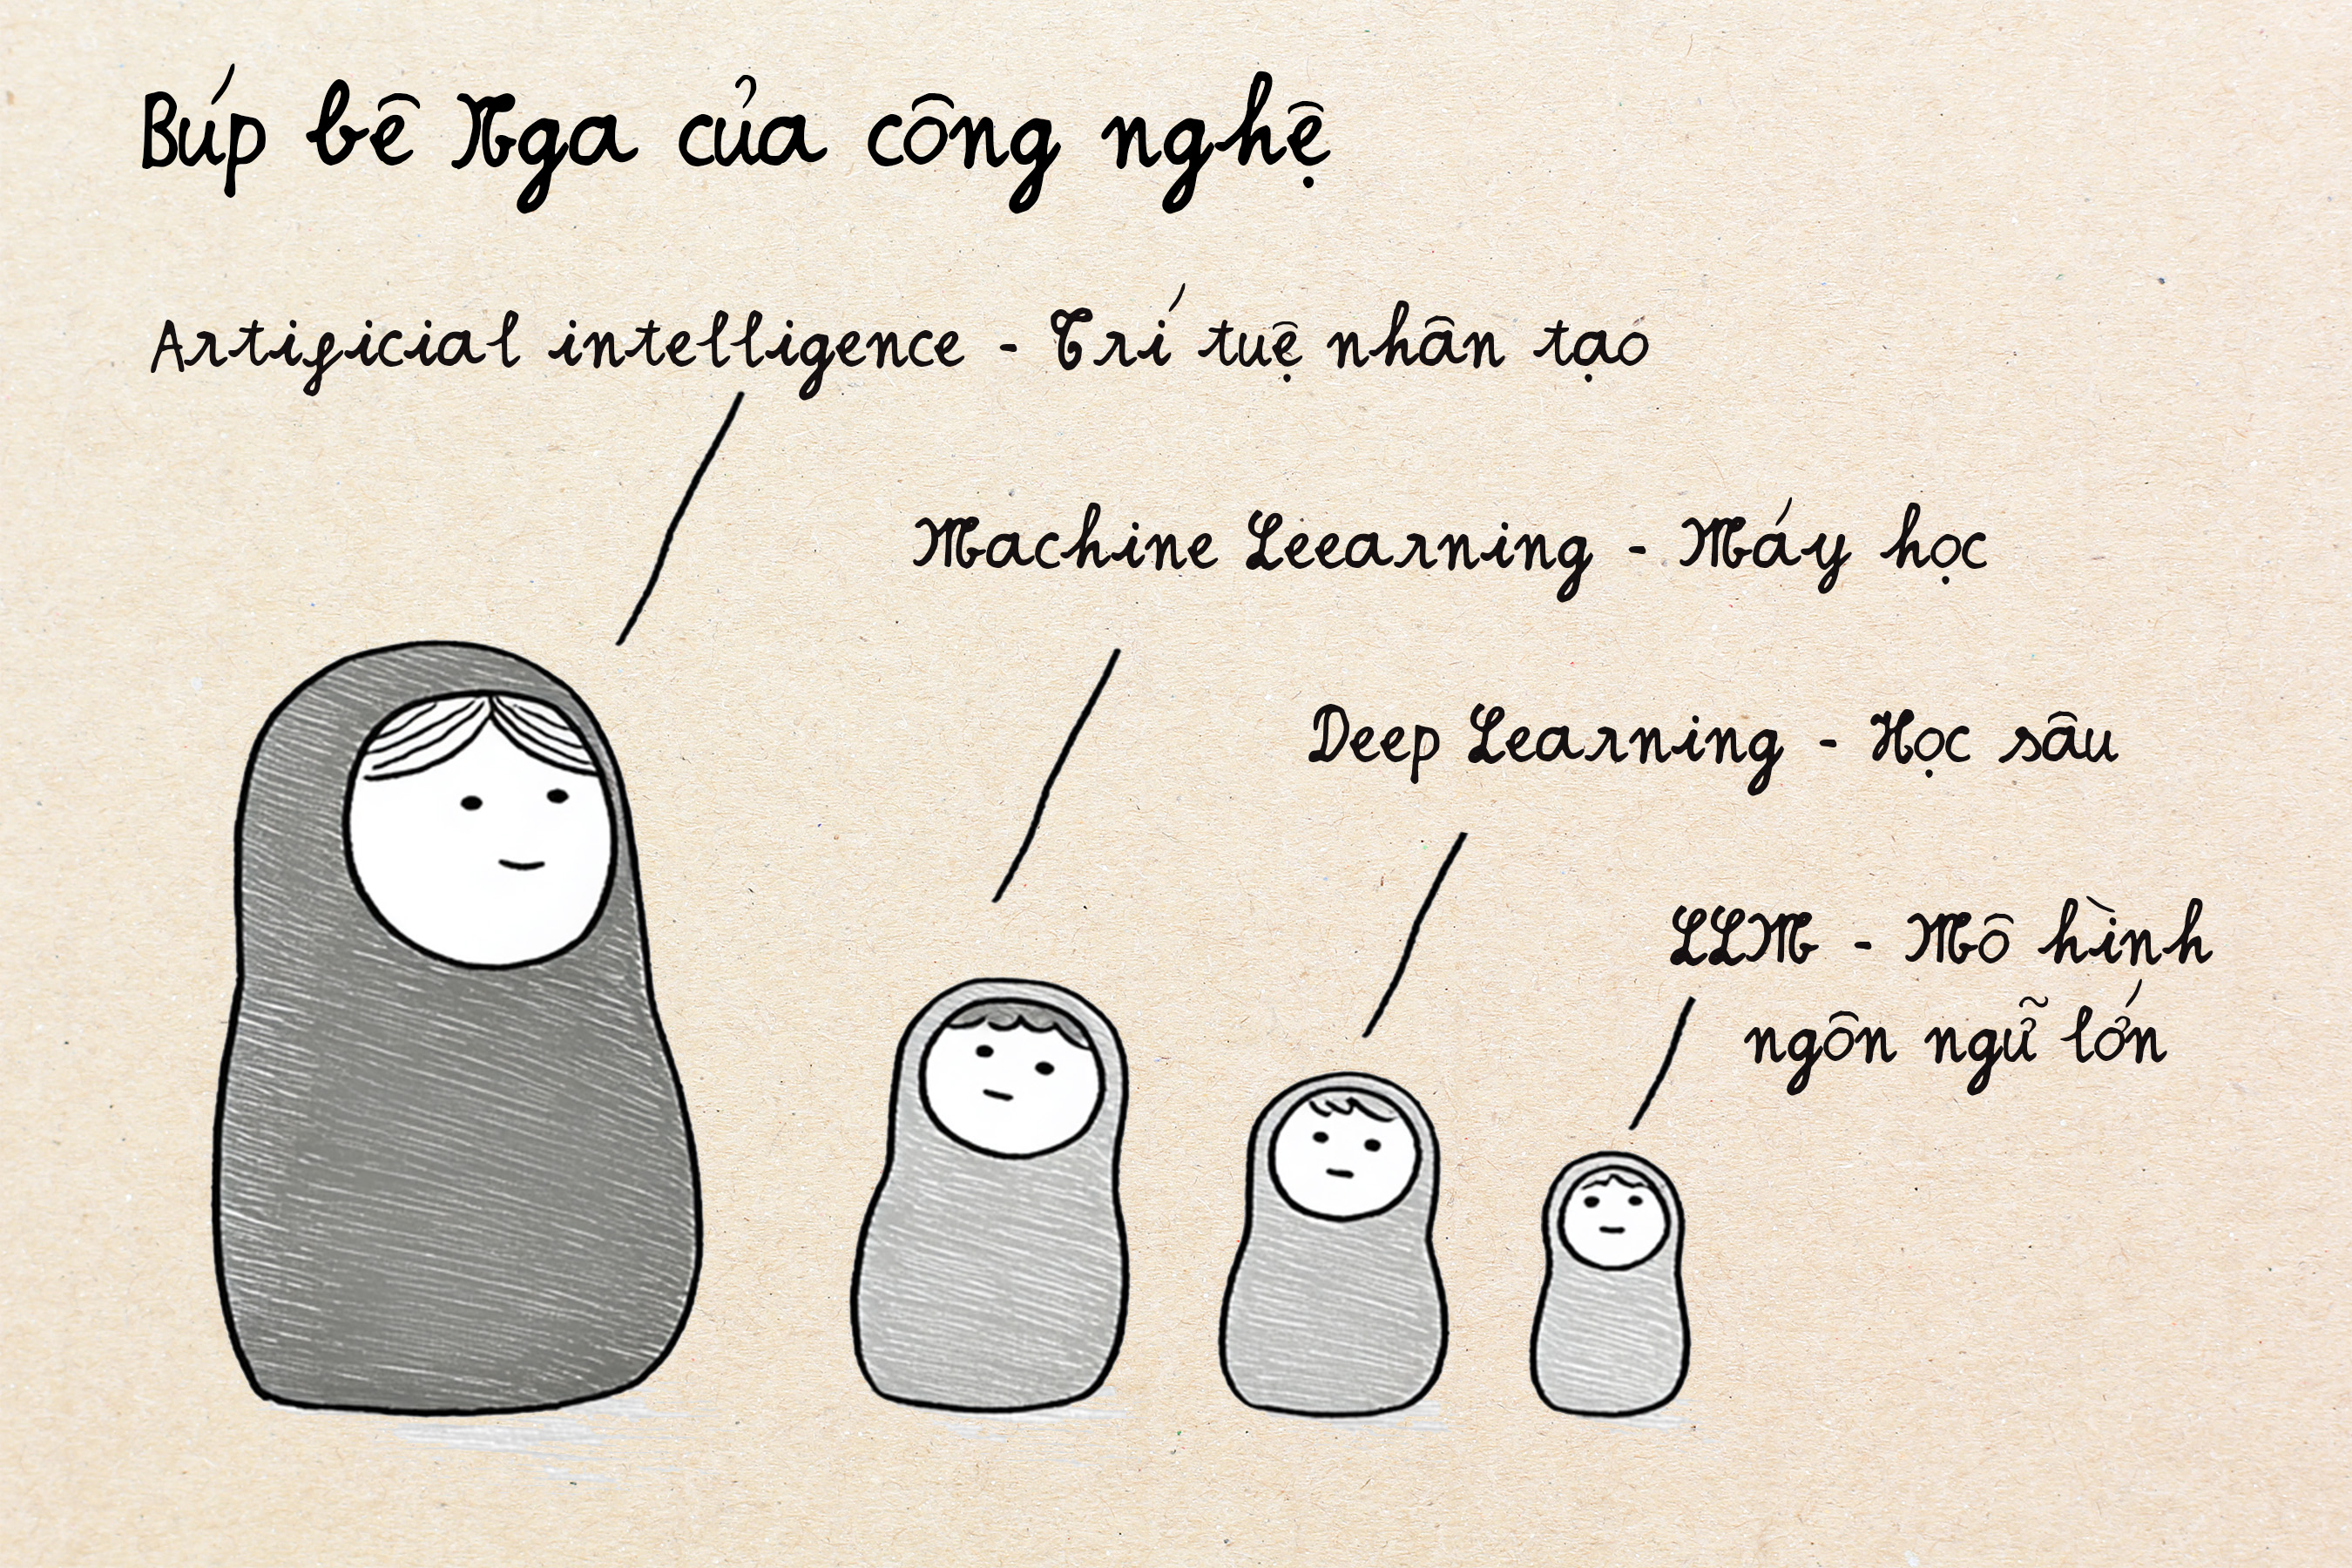 Búp bê Nga của công nghệ
Artificial intelligence - Trí tuệ nhân tạo
Machine Leearning - Máy học
Deep Learning - Học sâu
LLM - Mô hình
ngôn ngữ lớn